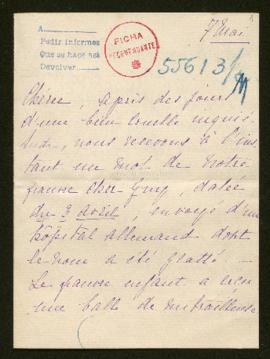 7 Mai
A
Pedir informes
Que se haga así
Devolver
FICHA
55613/
Chérie, Après des jours
d'une bien cruelle inquié
tude, nous recevons à l'ins
tant un mot de notre
pauvre cher Guy, daté
du 3 avril, envoyé d'un
hôpital allemand dont
le nom a été gratté —
Le pauvre enfant a reçu
une balle de mitrailleuse